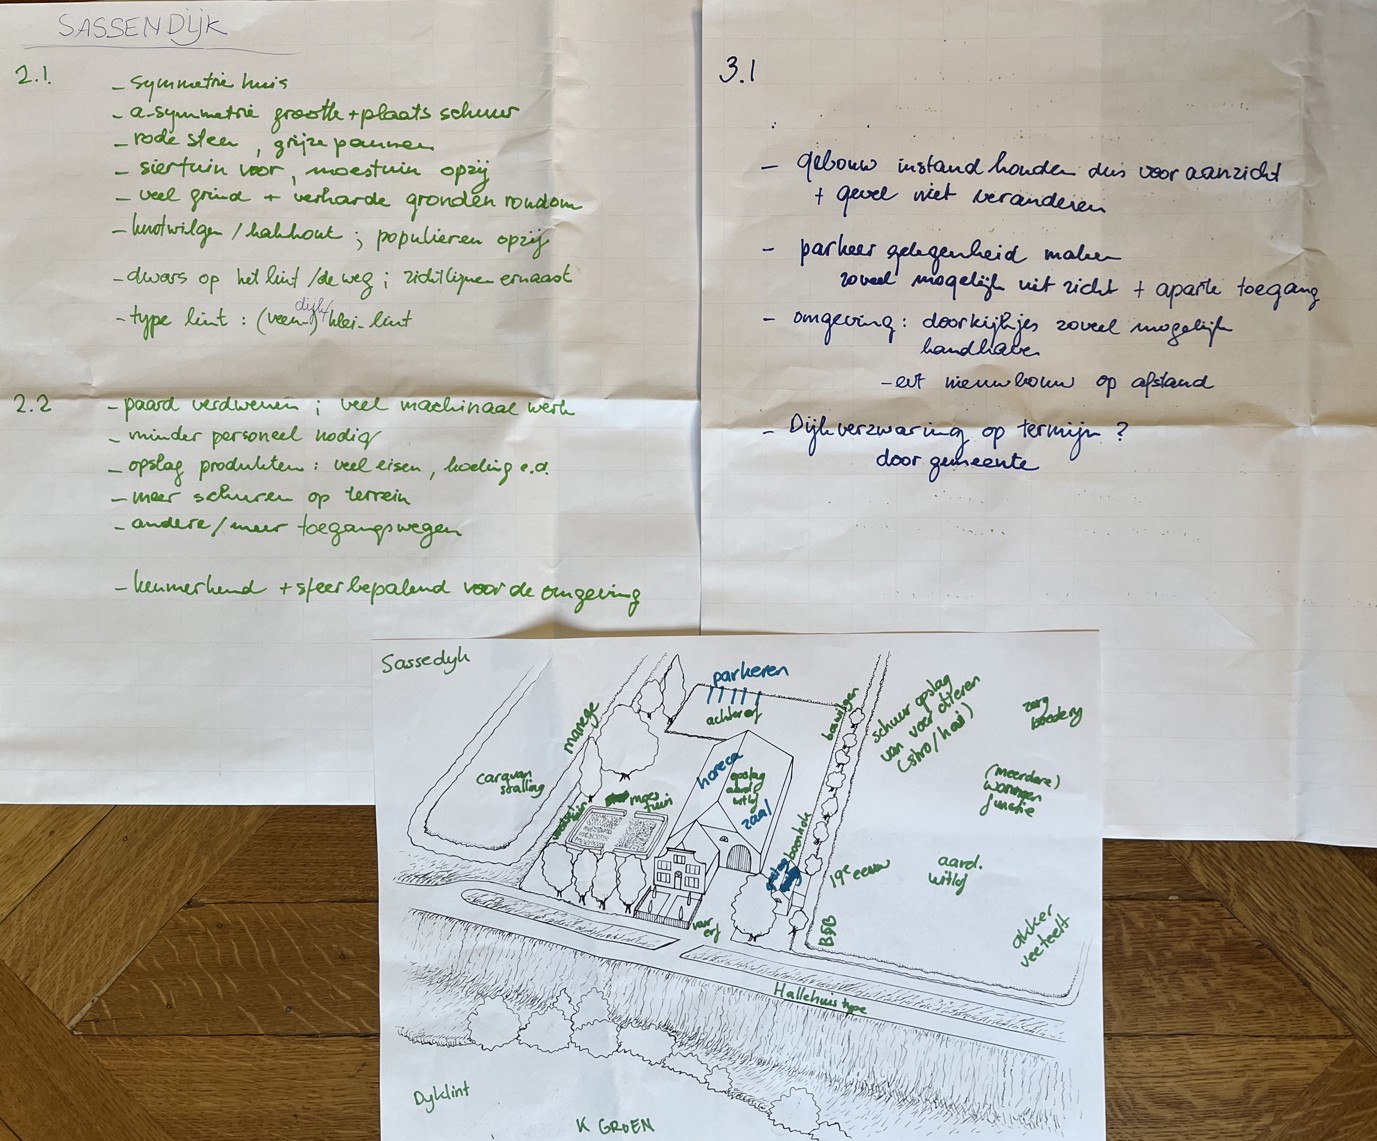 SASSENDIJK
2.1.
- symmetrie huis
- a-symmetrie grootte + plaats schuur
- rode steen, grijze pannen
- siertuin voor, moestuin opzij
- veel grind + verharde gronden rondom
- knotwilgen / hakhout ; populieren opzij
- dwars op het lint / de weg ; zichtlijnen ernaast
dijk/
- type lint : (veen-) klei-lint
2.2
- paard verdwenen ; veel machinaal werk
- minder personeel nodig
- opslag produkten : veel eisen, koeling e.d.
- meer schuren op terrein
- andere / meer toegangswegen
- kenmerkend + sfeerbepalend voor de omgeving
3.1
- gebouw instand houden dus vooraanzicht
+ gevel niet veranderen
- parkeer gelegenheid maken
zoveel mogelijk uit zicht + aparte toegang
- omgeving : doorkijkjes zoveel mogelijk
handhaven
- evt nieuwbouw op afstand
- Dijkverzwaring op termijn ?
door gemeente
Sassedyk
parkeren
achtererf
manege
caravan
stalling
moes
tuin
horeca
opslag
aard.
witlof
zaal
boomwilgen
schuur opslag
van voer dieren
(silo / hooi)
zorg
boederij
(meerdere)
woningen
functie
19e eeuw
aard.
witlof
akker
veeteelt
B&B
voor
erf
Hallehuis type
Dyklint
K GROEN